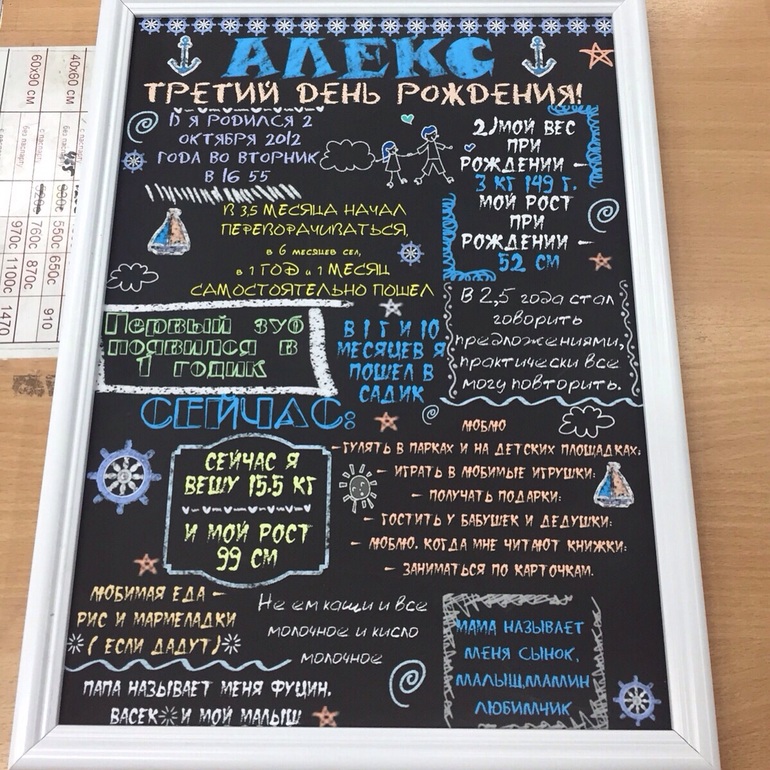 АЛЕКС
ТРЕТИЙ ДЕНЬ РОЖДЕНИЯ!
1) Я РОДИЛСЯ 2
ОКТЯБРЯ 2012
ГОДА ВО ВТОРНИК
В 16 55
2) МОЙ ВЕС
ПРИ
РОЖДЕНИИ –
3 КГ 149 Г.
МОЙ РОСТ
ПРИ
РОЖДЕНИИ –
52 СМ
В 3,5 МЕСЯЦА НАЧАЛ
ПЕРЕВОРАЧИВАТЬСЯ,
в 6 месяцев сел,
в 1 ГОД и 1 МЕСЯЦ
САМОСТОЯТЕЛЬНО ПОШЕЛ
Первый зуб
появился в
1 годик
В 1 Г И 10
МЕСЯЦЕВ Я
ПОШЕЛ В
САДИК
В 2,5 года стал
говорить
предложениями,
практически все
могу повторить.
СЕЙЧАС:
СЕЙЧАС Я
ВЕШУ 15.5 КГ
И МОЙ РОСТ
99 СМ
ЛЮБЛЮ
– ГУЛЯТЬ В ПАРКАХ И НА ДЕТСКИХ ПЛОЩАДКАХ;
– ИГРАТЬ В ЛЮБИМЫЕ ИГРУШКИ;
– ПОЛУЧАТЬ ПОДАРКИ;
– ГОСТИТЬ У БАБУШЕК И ДЕДУШКИ;
– ЛЮБЛЮ, КОГДА МНЕ ЧИТАЮТ КНИЖКИ;
– ЗАНИМАТЬСЯ ПО КАРТОЧКАМ.
ЛЮБИМАЯ ЕДА –
РИС И МАРМЕЛАДКИ
( ЕСЛИ ДАДУТ)
Не ем каши и все
молочное и кисло
молочное
МАМА НАЗЫВАЕТ
МЕНЯ СЫНОК,
МАЛЫШ,МАМИН
ЛЮБИМЧИК
ПАПА НАЗЫВАЕТ МЕНЯ ФУЦИН,
ВАСЕК И МОЙ МАЛЫШ
40х60 СМ
550с 650с
910
60х90 СМ
760с 870с
970с 1100с
1470